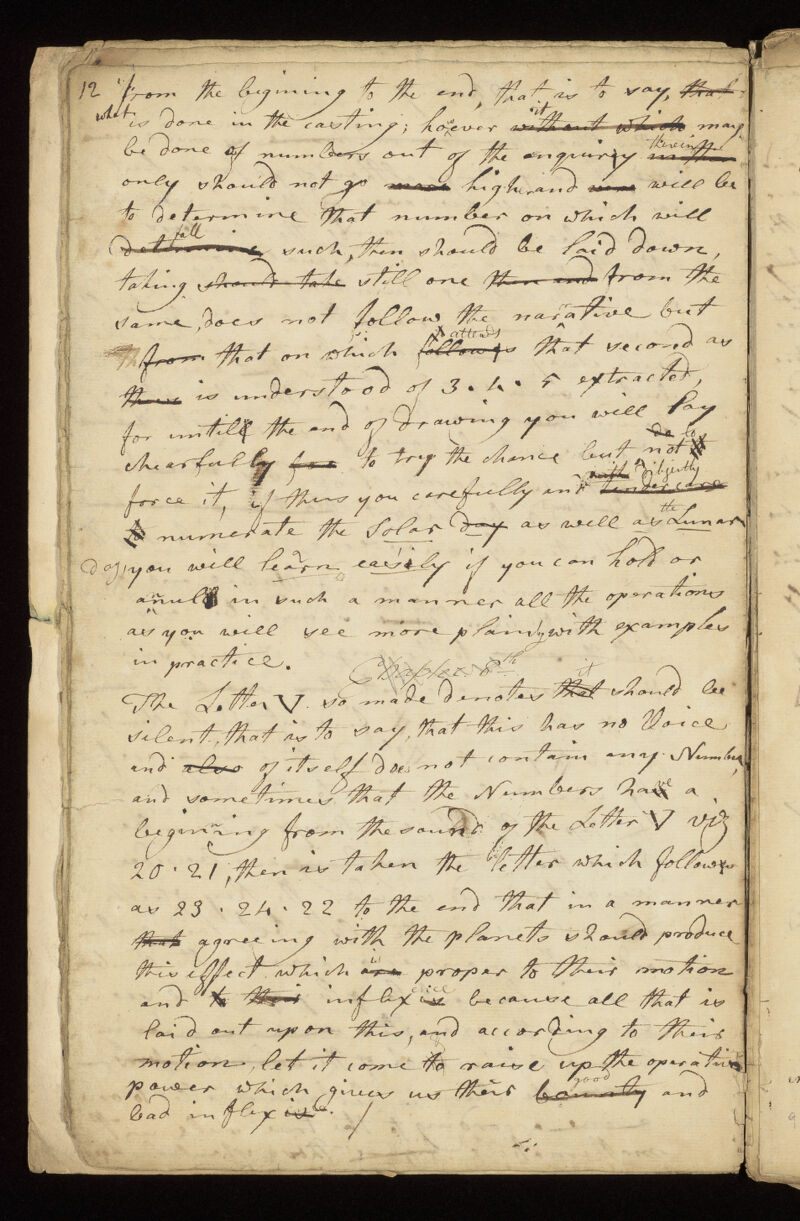 12 from the begining to the end, that is to say, that
what is done in the casting; hoever it without which may
be done of numbers out of the enquiry therein
only should not go higher and will be
to determine that number on which will
fall determine such, then should be laid down,
taking should take still one then end from the
same, does not follow the narative but
from that on which attends follows that second as
is understood of 3. 4. 5 extracted,
for untill the end of drawing you will Pay
chearfully for to try the chance but not
force it, if thus you carefully and tender care
numerate the Solar day as well as the Lunar
day, you will learn easily if you can hold or
anull in such a manner all the operations
as you will see more plainly with examples
in practice.
Chapter 8th
The Letter V. so made denotes it that should be
silent, that is to say, that this has no Voice
and also of itself does not contain any Number,
and sometimes that the Numbers have a
begining from the sound of the Letter V viz
20. 21, then is taken the letter which follows
as 23. 24. 22 to the end that in a manner
that agreeing with the planets should produce
this effect, which are proper to their motion
and their inflex because all that is
laid out upon this, and according to their
motion, let it come to raise up the operative
power which gives us their good bounty and
bad inflex.